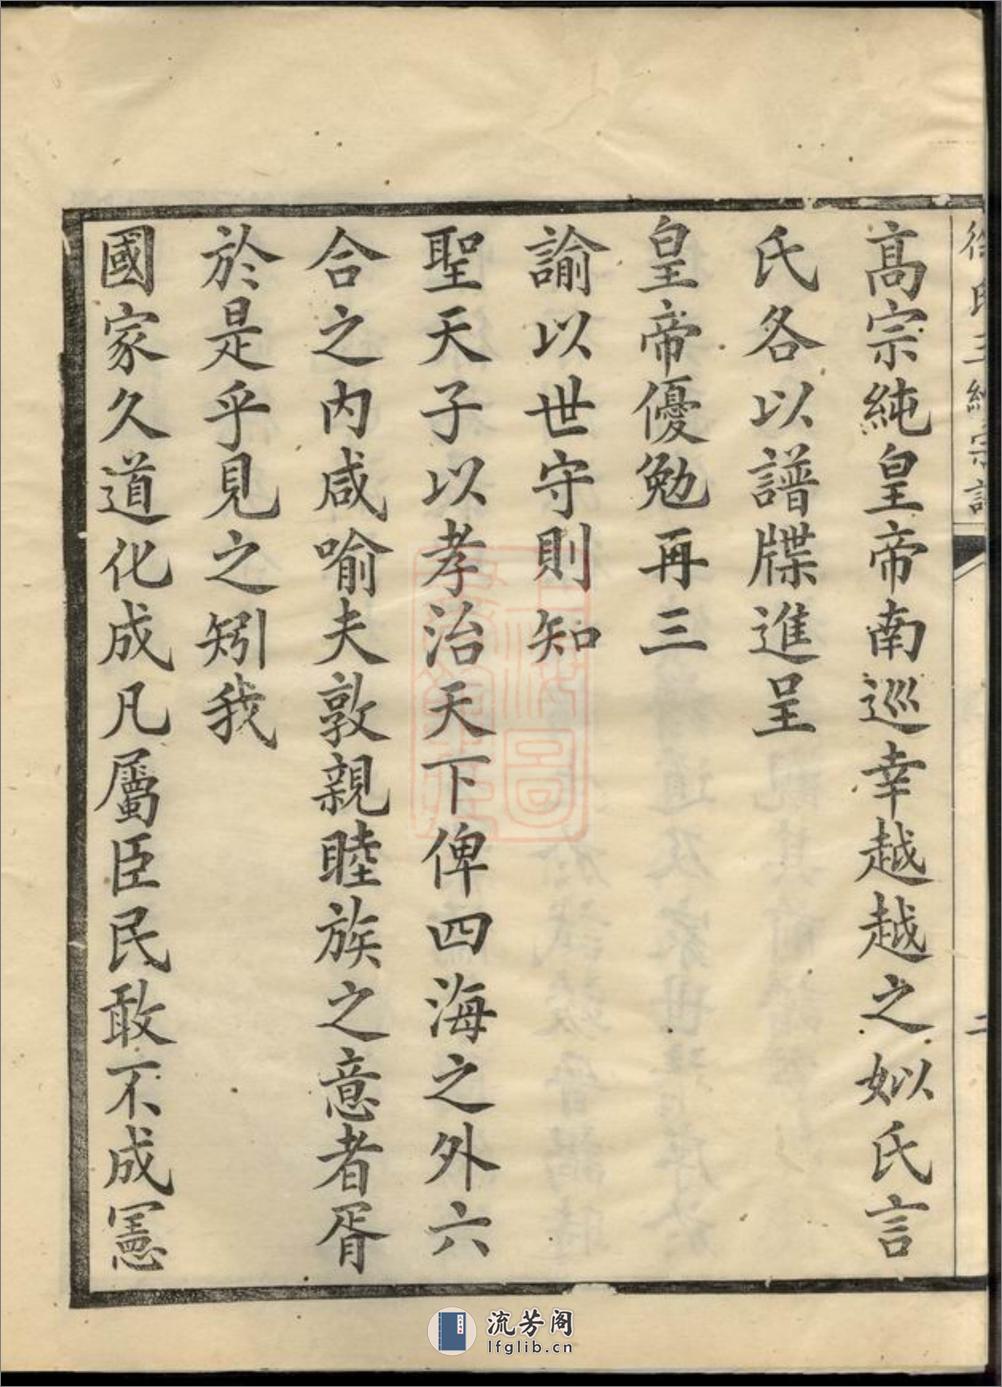 高宗純皇帝南巡幸越越之姒氏言
氏各以譜牒進呈
皇帝優勉再三
諭以世守則知
聖天子以孝治天下俾四海之外六
合之内咸喻夫敦親睦族之意者胥
於是乎見之矧我
國家久道化成凡屬臣民敢不成憲
氏三 宗
二
流芳阁
lfglib.cn